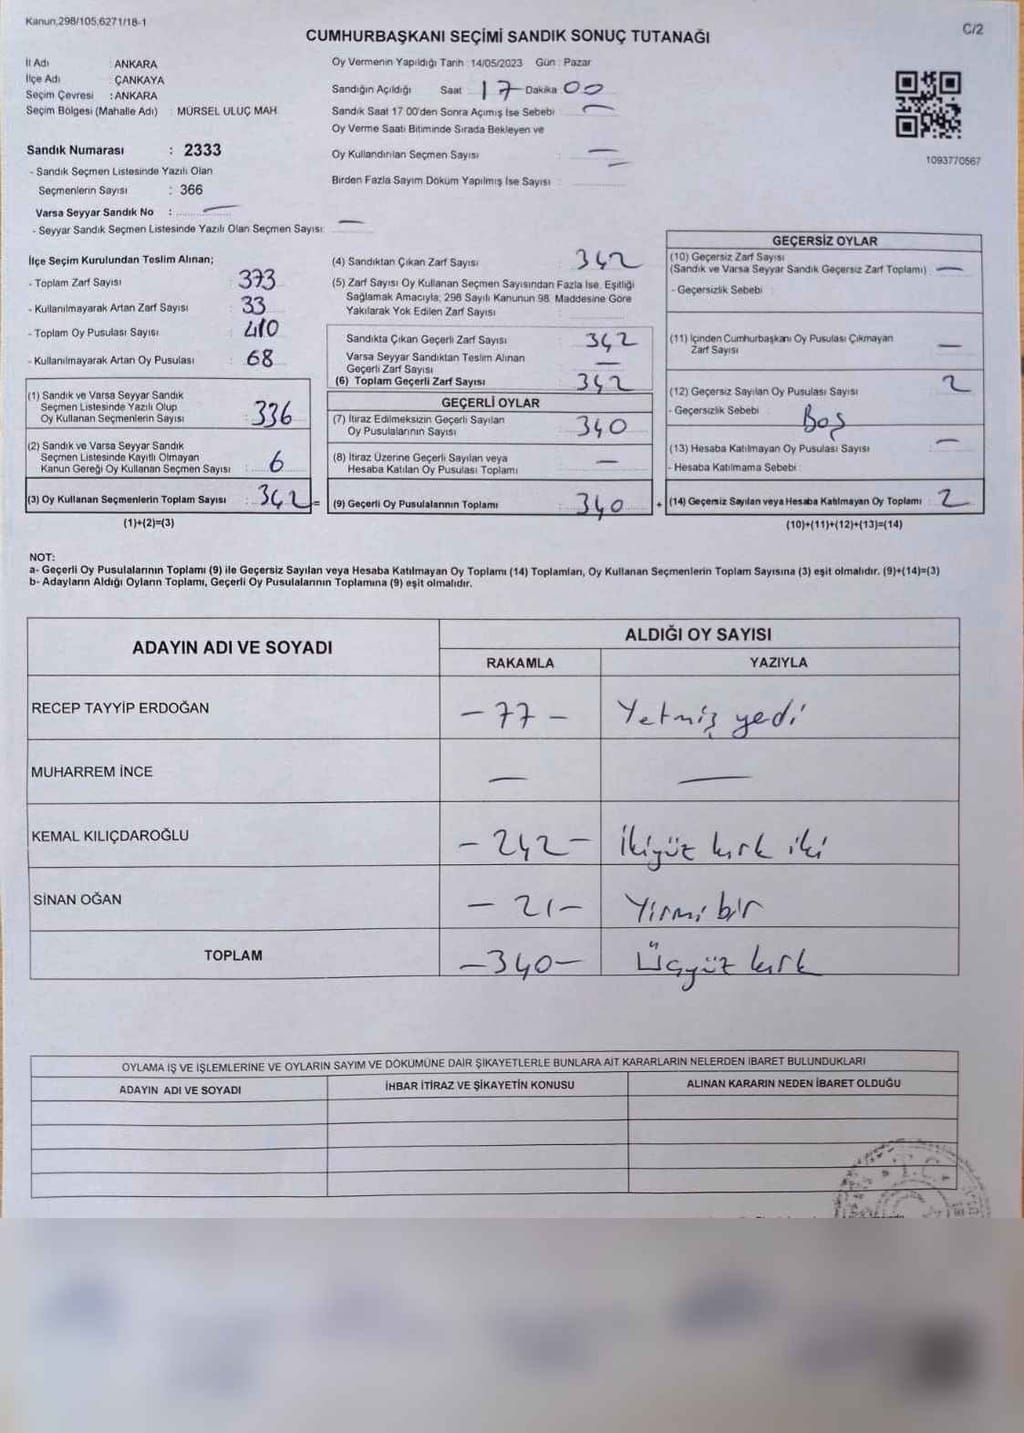 Kanun,298/105,6271/18-1
C/2
CUMHURBAŞKANI SEÇİMİ SANDIK SONUÇ TUTANAĞI
İl Adı : ANKARA
İlçe Adı : ÇANKAYA
Seçim Çevresi : ANKARA
Seçim Bölgesi (Mahalle Adı) : MÜRSEL ULUÇ MAH
Sandık Numarası : 2333
- Sandık Seçmen Listesinde Yazılı Olan
Seçmenlerin Sayısı : 366
Varsa Seyyar Sandık No : —
- Seyyar Sandık Seçmen Listesinde Yazılı Olan Seçmen Sayısı: —
Oy Vermenin Yapıldığı Tarih : 14/05/2023 Gün : Pazar
Sandığın Açıldığı Saat 17 Dakika 00
Sandık Saat 17.00'den Sonra Açımış İse Sebebi —
Oy Verme Saati Bitiminde Sırada Bekleyen ve
Oy Kullandırılan Seçmen Sayısı : —
Birden Fazla Sayım Döküm Yapılmış İse Sayısı : —
1093770567
İlçe Seçim Kurulundan Teslim Alınan;
- Toplam Zarf Sayısı : 373
- Kullanılmayarak Artan Zarf Sayısı : 33
- Toplam Oy Pusulası Sayısı : 410
- Kullanılmayarak Artan Oy Pusulası : 68
(1) Sandık ve Varsa Seyyar Sandık
Seçmen Listesinde Yazılı Olup
Oy Kullanan Seçmenlerin Sayısı : 336
(2) Sandık ve Varsa Seyyar Sandık
Seçmen Listesinde Kayıtlı Olmayan
Kanun Gereği Oy Kullanan Seçmen Sayısı : 6
(3) Oy Kullanan Seçmenlerin Toplam Sayısı : 342 =
(1)+(2)=(3)
(4) Sandıktan Çıkan Zarf Sayısı : 342
(5) Zarf Sayısı Oy Kullanan Seçmen Sayısından Fazla İse, Eşitliği
Sağlamak Amacıyla, 298 Sayılı Kanunun 98. Maddesine Göre
Yakılarak Yok Edilen Zarf Sayısı :
Sandıkta Çıkan Geçerli Zarf Sayısı : 342
Varsa Seyyar Sandıktan Teslim Alınan
Geçerli Zarf Sayısı : —
(6) Toplam Geçerli Zarf Sayısı : 342
GEÇERLİ OYLAR
(7) İtiraz Edilmeksizin Geçerli Sayılan
Oy Pusulalarının Sayısı : 340
(8) İtiraz Üzerine Geçerli Sayılan veya
Hesaba Katılan Oy Pusulası Toplamı : —
(9) Geçerli Oy Pusulalarının Toplamı : 340 +
GEÇERSİZ OYLAR
(10) Geçersiz Zarf Sayısı
(Sandık ve Varsa Seyyar Sandık Geçersiz Zarf Toplamı) : —
- Geçersizlik Sebebi :
(11) İçinden Cumhurbaşkanı Oy Pusulası Çıkmayan
Zarf Sayısı —
(12) Geçersiz Sayılan Oy Pusulası Sayısı 2
- Geçersizlik Sebebi Boş
(13) Hesaba Katılmayan Oy Pusulası Sayısı —
- Hesaba Katılmama Sebebi :
(14) Geçersiz Sayılan veya Hesaba Katılmayan Oy Toplamı 2
(10)+(11)+(12)+(13)=(14)
NOT:
a- Geçerli Oy Pusulalarının Toplamı (9) ile Geçersiz Sayılan veya Hesaba Katılmayan Oy Toplamı (14) Toplamları, Oy Kullanan Seçmenlerin Toplam Sayısına (3) eşit olmalıdır. (9)+(14)=(3)
b- Adayların Aldığı Oyların Toplamı, Geçerli Oy Pusulalarının Toplamına (9) eşit olmalıdır.
ADAYIN ADI VE SOYADI
ALDIĞI OY SAYISI
RAKAMLA YAZIYLA
RECEP TAYYİP ERDOĞAN - 77 - Yetmiş yedi
MUHARREM İNCE — —
KEMAL KILIÇDAROĞLU - 242 - İkiyüz kırk iki
SİNAN OĞAN - 21 - Yirmi bir
TOPLAM - 340 - Üçyüz kırk
OYLAMA İŞ VE İŞLEMLERİNE VE OYLARIN SAYIM VE DÖKÜMÜNE DAİR ŞİKAYETLERLE BUNLARA AİT KARARLARIN NELERDEN İBARET BULUNDUKLARI
ADAYIN ADI VE SOYADI İHBAR İTİRAZ VE ŞİKAYETİN KONUSU ALINAN KARARIN NEDEN İBARET OLDUĞU
T.C.